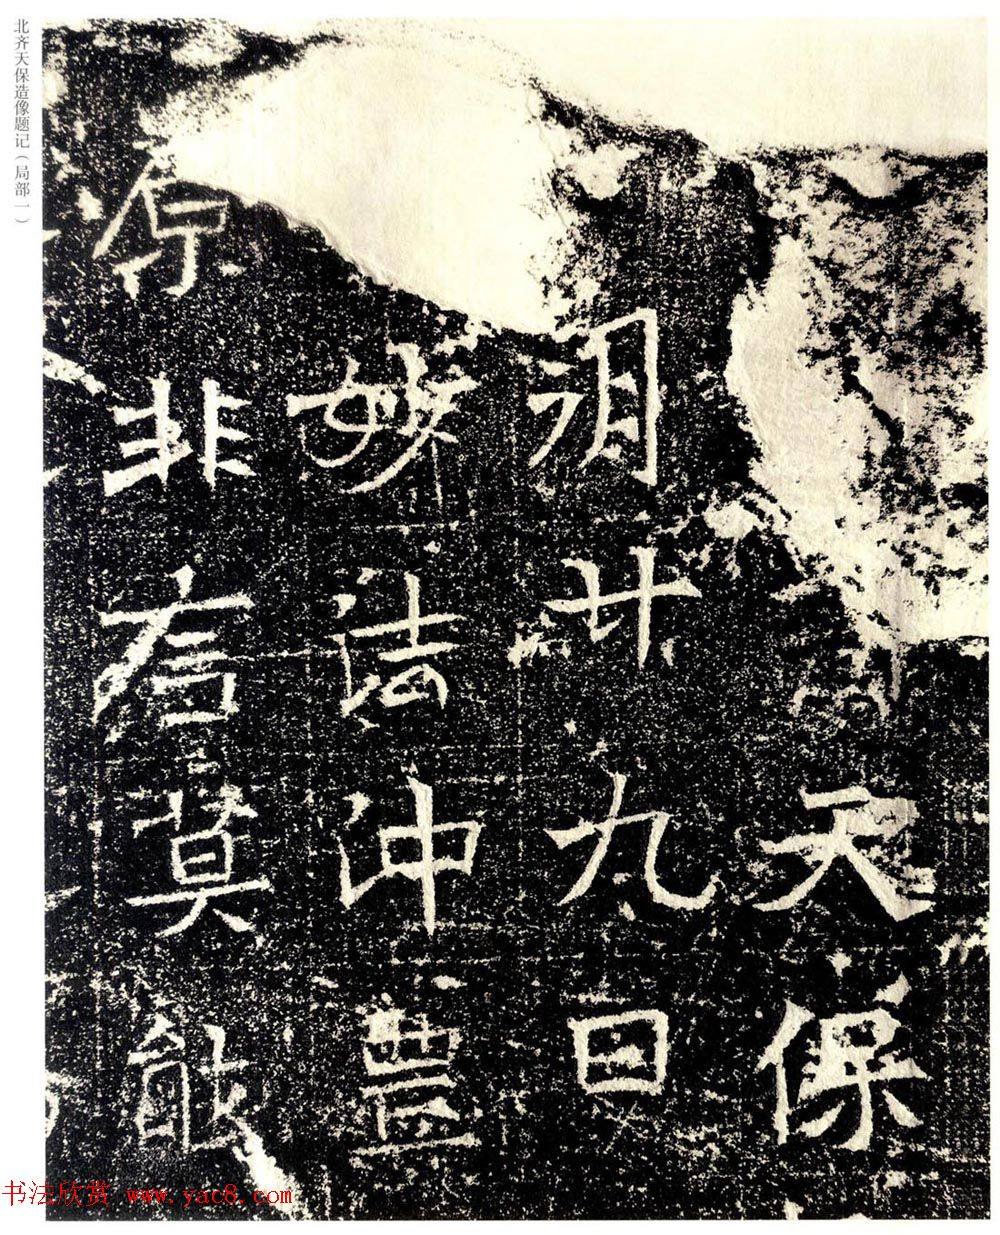 北齐天保造像题记（局部一）
天保
月廿九日
妙法沖豊
非言莫能
书法欣赏 www.yac8.com